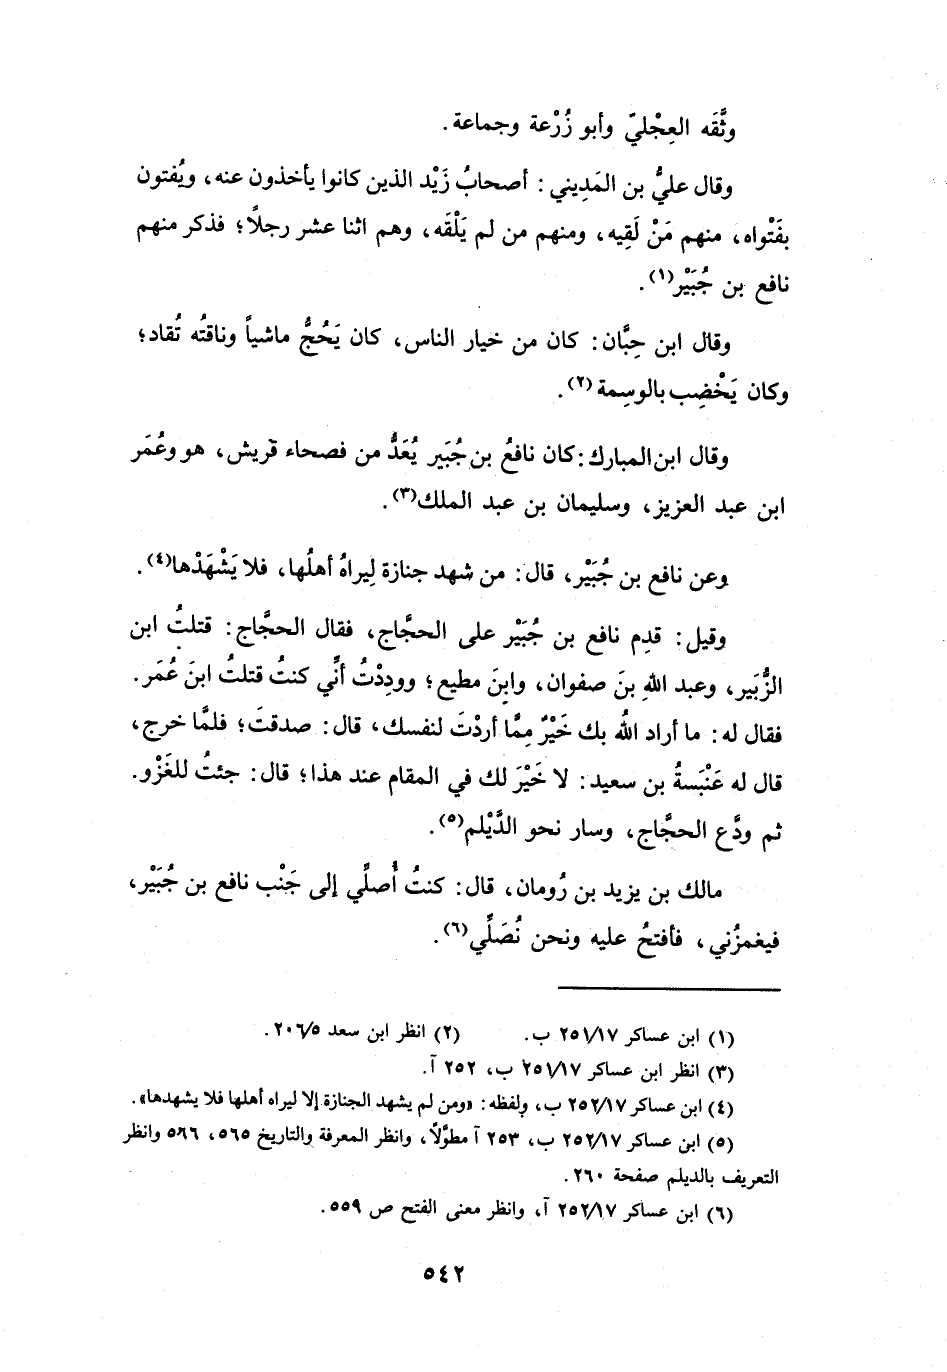 وثَّقَه العِجْليّ وأبو زُرْعة وجماعة.
وقال عليُّ بن المَدِيني: أصحابُ زَيْد الذين كانوا يأخذون عنه، ويُفتون
بفَتْواه، منهم مَنْ لَقِيه، ومنهم من لم يَلْقَه، وهم اثنا عشر رجلاً؛ فذكر منهم
نافع بن جُبَيْر(١).
وقال ابن حِبَّان: كان من خيار الناس، كان يَحُجُّ ماشياً وناقتُه تُقاد؛
وكان يَخْضِب بالوسِمة(٢).
وقال ابن المبارك: كان نافعُ بن جُبَير يُعَدُّ من فصحاء قريش، هو وعُمَر
ابن عبد العزيز، وسليمان بن عبد الملك(٣).
وعن نافع بن جُبَيْر، قال: من شهد جنازة لِيراهُ أهلُها، فلا يَشْهَدْها(٤).
وقيل: قدِم نافع بن جُبَيْر على الحجَّاج، فقال الحجَّاج: قتلتُ ابن
الزُّبَير، وعبد اللهِ بنَ صفوان، وابنَ مطيع؛ ووِدِدْتُ أنِّي كنتُ قتلتُ ابنَ عُمَر.
فقال له: ما أراد اللهُ بك خَيْرٌ مِمَّا أردْتَ لنفسك، قال: صدقتَ؛ فلمَّا خرج،
قال له عَنْبَسةُ بن سعيد: لا خَيْرَ لك في المقام عند هذا؛ قال: جئتُ للغَزْو.
ثم ودَّع الحجَّاج، وسار نحو الدَّيْلم(٥).
مالك بن يزيد بن رُومان، قال: كنتُ أُصلِّي إلى جَنْب نافع بن جُبَيْر،
فيغمزُني، فأفتحُ عليه ونحن نُصَلِّي(٦).
(١) ابن عساكر ٢٥١/١٧ ب. (٢) انظر ابن سعد ٢٠٦/٥.
(٣) انظر ابن عساكر ٢٥١/١٧ ب، ٢٥٢ آ.
(٤) ابن عساكر ٢٥٢/١٧ ب، ولفظه: «ومن لم يشهد الجنازة إلا ليراه أهلها فلا يشهدها».
(٥) ابن عساكر ٢٥٢/١٧ ب، ٢٥٣ آ مطوَّلاً، وانظر المعرفة والتاريخ ٥٦٥، ٥٦٦ وانظر
التعريف بالديلم صفحة ٢٦٠.
(٦) ابن عساكر ٢٥٢/١٧ آ، وانظر معنى الفتح ص ٥٥٩.
٥٤٢